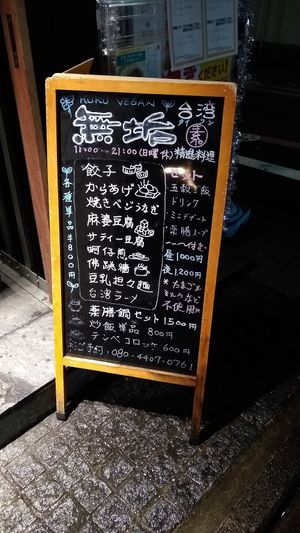 HUKU VEGAN
無垢 台湾素
11:00〜21:00(日曜休)精進料理
各種単品¥800
餃子
からあげ
焼きベジうなぎ
麻婆豆腐
サテイー豆腐
蚵仔煎
佛跳牆
豆乳担々麺
台湾ラーメン
セット
五穀ご飯
ドリンク
ミニデザート
薬膳スープ
付き
昼1000円
夜1200円
*たまご
など
不使用*
薬膳鍋セット1500円
炒飯単品 800円
テンペコロッケ600円
ご予約:080-4407-0761